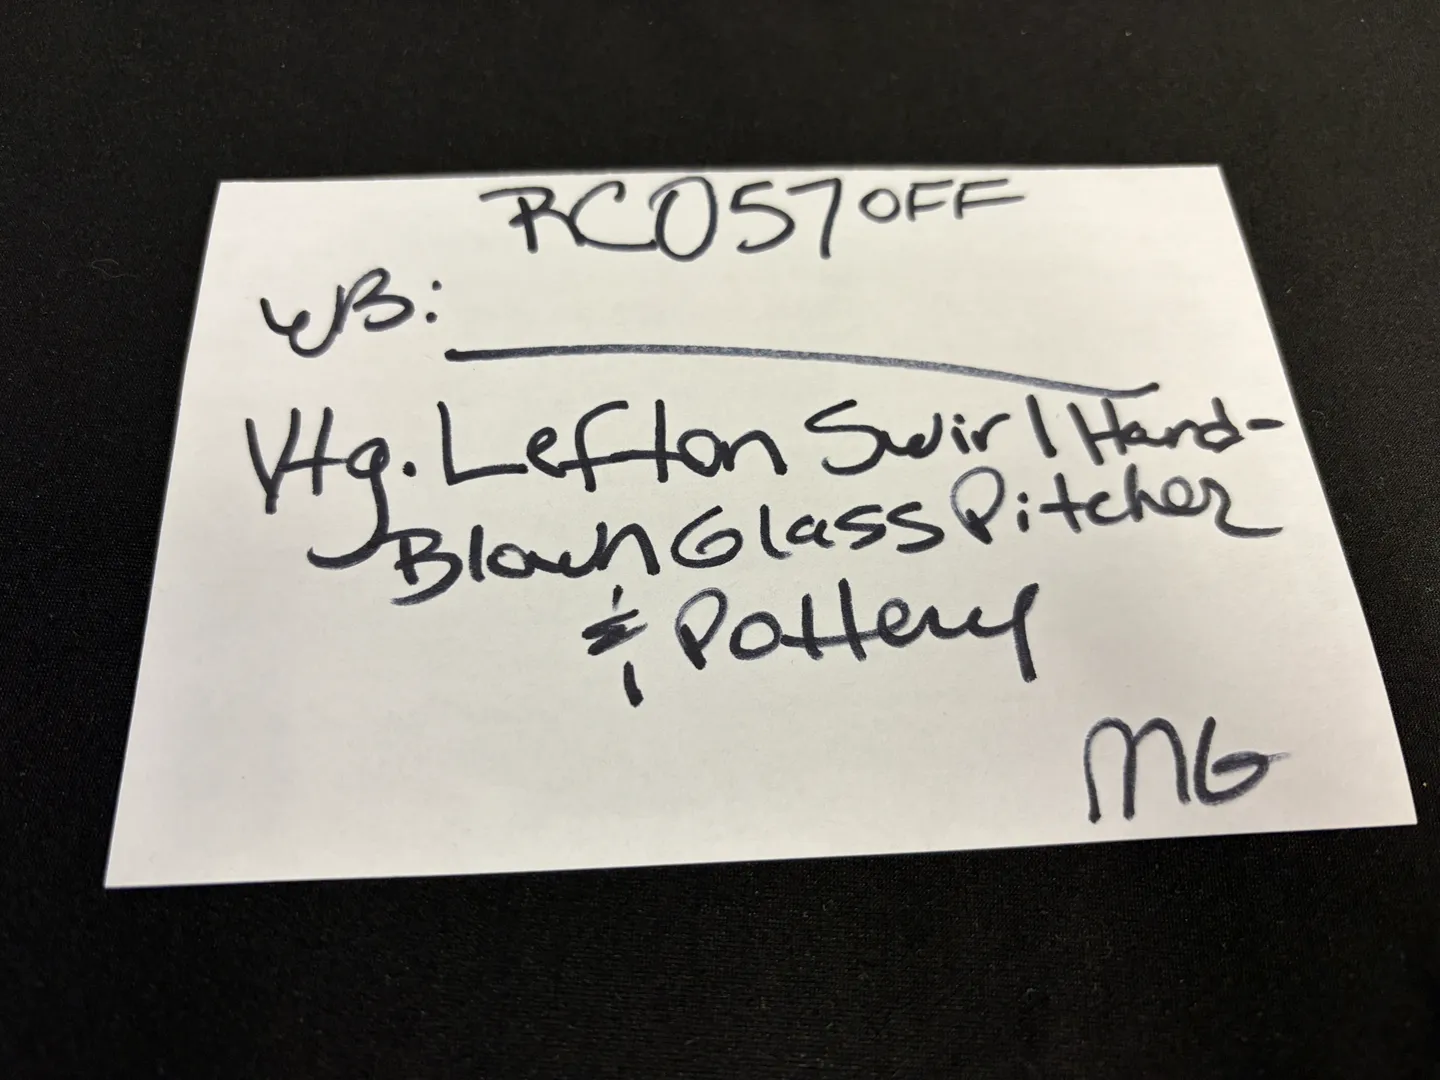 RC057OFF
WB:
Vtg. Lefton Swirl Hand-
Blown Glass Pitcher
& Pottery
MG